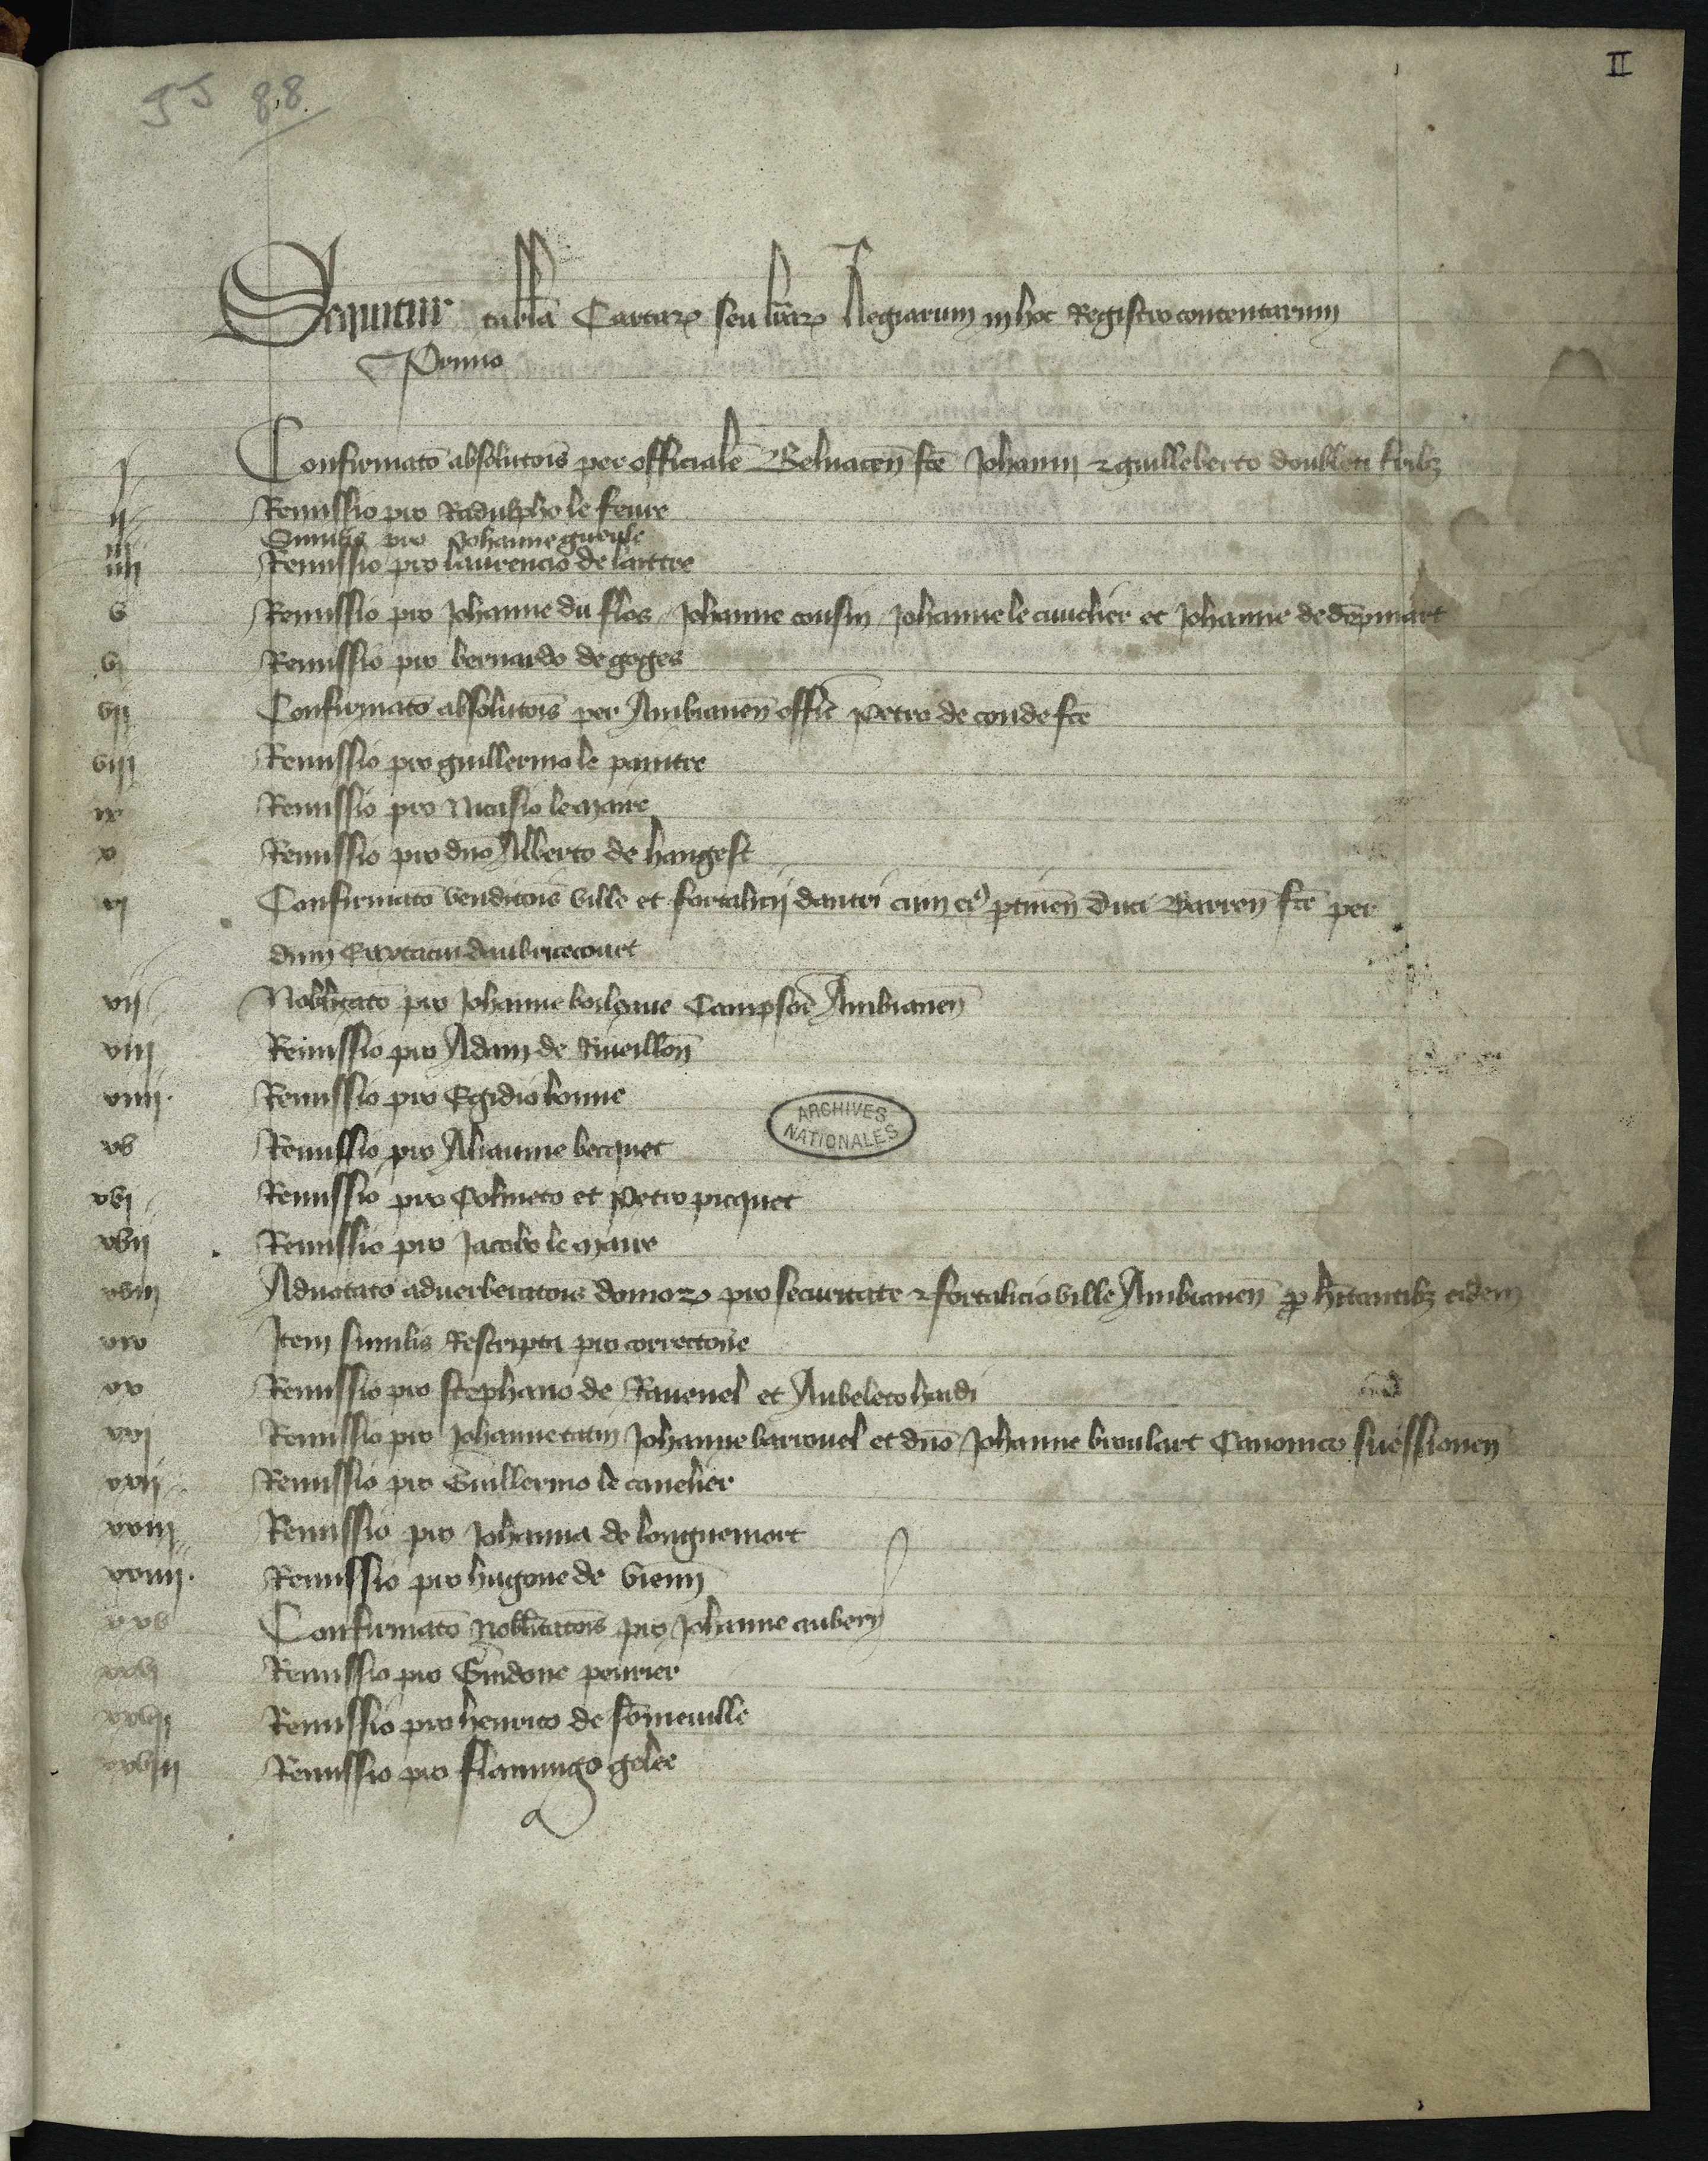 II
JJ 88
Sequitur tabla Cartarꝝ seu lrarꝝ Regiarum in hoc Registro contentarum
Primo
j Confirmatō absolutōis per officialē Belvacen̄ fcē Johanni ⁊ guilleberto doubleti frībꝫ
ij Remissio pro Radulpho le fevre
iij Similis pro Johanne guerse
iiij Remissio pro laurencio de laittre
v Remissio pro Johanne du flos Johanne cousin Johanne le cuvelier et Johanne de dōpmart
vj Remissio pro bernardo de goges
vij Confirmatō absolutōis per Ambianen̄ offic̄ Petro de conde fcē
viij Remissio pro guillermo le paintre
ix Remissio pro Nicasio le maire
x Remissio pro dn̄o Alberto de hangest
xj Confirmatō venditōis ville et fortalicij dautri cum eiꝰ ptinen̄ Duci Barren̄ fcē per
dnm Eustaciu daubricecourt
xij Nobilitatō pro Johanne boileaue Campsore Ambianen̄
xiij Remissio pro Adam de Rueillon̄
xiiij Remissio pro Egidio bonne
xv Remissio pro Aliaume becquet
xvj Remissio pro Colineto et Petro picquet
xvij Remissio pro Jacobo le maire
xviij Advocatō adverberatōis domoꝝ pro securitate ⁊ fortalicio ville Ambianen̄ ꝓ hītantibꝫ eidem
xix Item similis Rescripta pro correctōne
xx Remissio pro stephano de Ravenel et Aubeleto hardi
xxj Remissio pro Johanne tatin Johanne barronel et dn̄o Johanne broulart Canonico suessionen̄
xxij Remissio pro Guillermo le cavelier
xxiij Remissio pro Johanna de longuemort
xxiiij Remissio pro hugone de vienn̄
xxv Confirmatō nobilitatōis pro Johanne aubery
xxvj Remissio pro Guidone perrier
xxvij Remissio pro henrico de sōmeville
xxviij Remissio pro flamingo gelee
ARCHIVES
NATIONALES